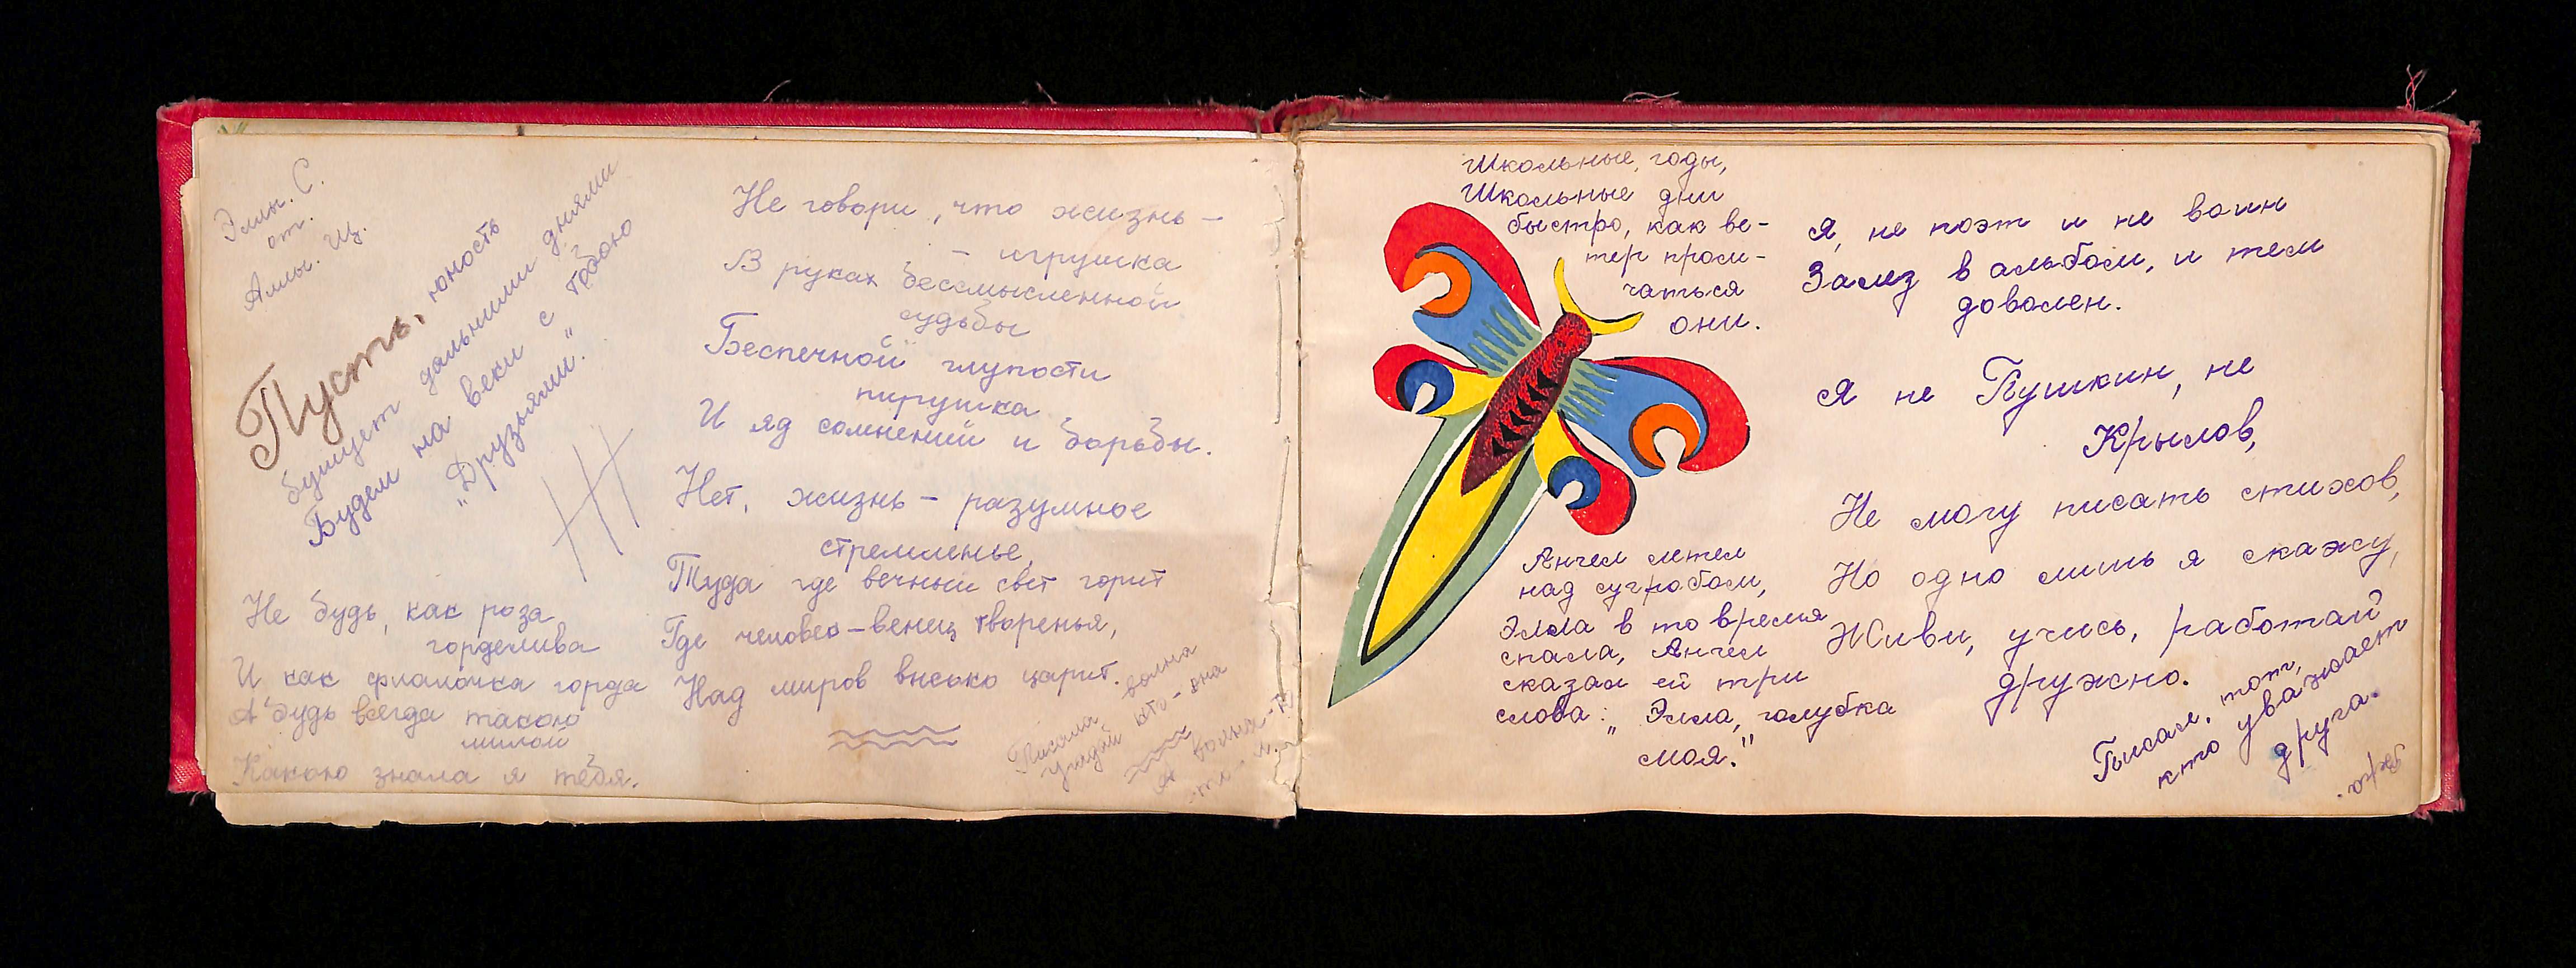 Эллы. С.
от.
Аллы. Щ.
Пусть, юность
бушует дальними днями
Будем на веки с тобою
"Друзьями."
Не будь, как роза
горделива
И как фиалочка горда
А будь всегда такою
милой
Какою знала я тебя.
Не говори, что жизнь –
– игрушка
В руках бессмысленной
судьбы
Беспечной глупости
пирушка
И яд сомнений и борьбы.
Нет, жизнь – разумное
стремленье,
Туда где вечный свет горит
Где человео – венец творенья,
Над миров высоко царит.
Писала волна
угадай кто – она
А волна
Школьные годы,
Школьные дни
быстро, как ве-
тер проли-
чаться
они.
Ангел летел
над сугробом,
Элла в то время
спала, Ангел
сказал ей три
слова: "Элла, голубка
моя."
Я, не поэт и не воин
Залез в альбом, и тем
доволен.
Я не Пушкин, не
Крылов,
Не могу писать стихов,
Но одно лишь я скажу,
Живи, учись, работай
дружно.
Писал, тот,
кто уважает
друга.